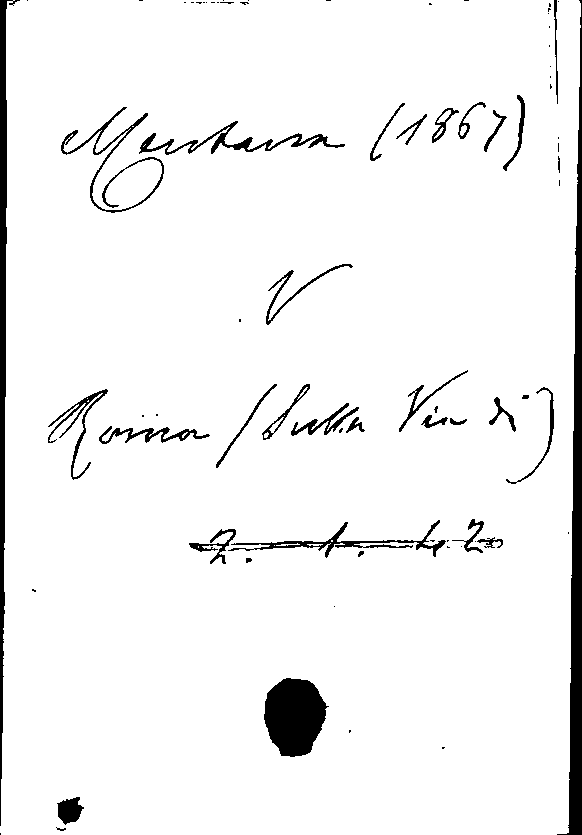 Mentana (1867)
V
Roma (Sulla Via di)
2. 1. 42